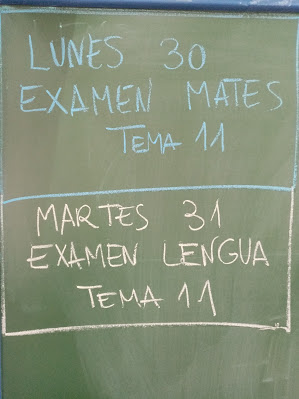 LUNES 30
EXAMEN MATES
TEMA 11
MARTES 31
EXAMEN LENGUA
TEMA 11